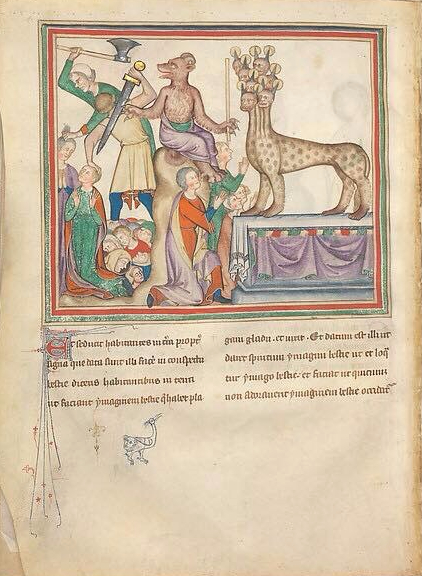 Et seduc habitantes in t̄ra propt̾
signa que data sunt illi fac̾e in conspectu
bestie dicens habitantibus in terra
ut faciant ymaginem bestie q̄ habet pla
gam gladii et uixit · Et datum est illi ut
daret spiritum ymagini bestie ut et loq̄
tur ymago bestie · et faciat ut quicunꝙ
non adorauerit ymaginem bestie occidat̾